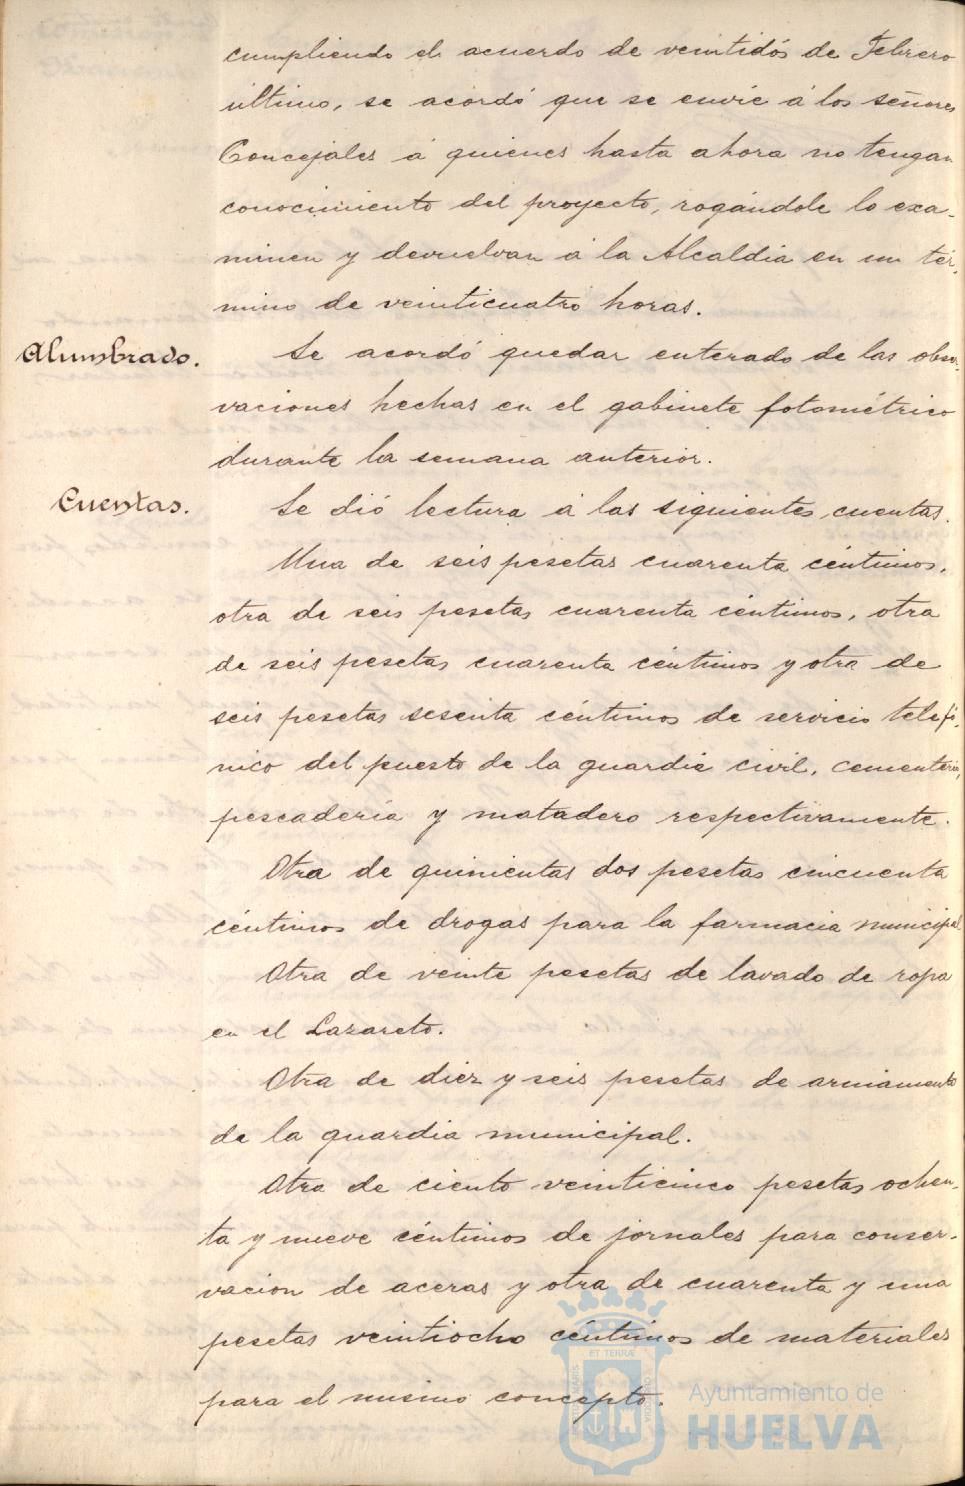 cumpliendo el acuerdo de veintidós de Febrero
último, se acordó que se envie á los señores
Concejales á quienes hasta ahora no tengan
conocimiento del proyecto, rogándole lo exa-
minen y devuelvan á la Alcaldia en un tér-
mino de veinticuatro horas.
Alumbrado. Se acordó quedar enterado de las obser-
vaciones hechas en el gabinete fotométrico
durante la semana anterior.
Cuentas. Se dió lectura á las siguientes cuentas.
Una de seis pesetas cuarenta céntimos,
otra de seis pesetas cuarenta céntimos, otra
de seis pesetas cuarenta céntimos y otra de
seis pesetas sesenta céntimos de servicio telefó-
nico del puesto de la guardia civil, cementerio,
pescadería y matadero respectivamente.
Otra de quinientas dos pesetas cincuenta
céntimos de drogas para la farmacia municipal.
Otra de veinte pesetas de lavado de ropa
en el Lazareto.
Otra de diez y seis pesetas de armamento
de la guardia municipal.
Otra de ciento veinticinco pesetas ochen-
ta y nueve céntimos de jornales para conser-
vacion de aceras y otra de cuarenta y una
pesetas veintiocho céntimos de materiales
para el mismo concepto.
ET TERRÆ
Ayuntamiento de
HUELVA